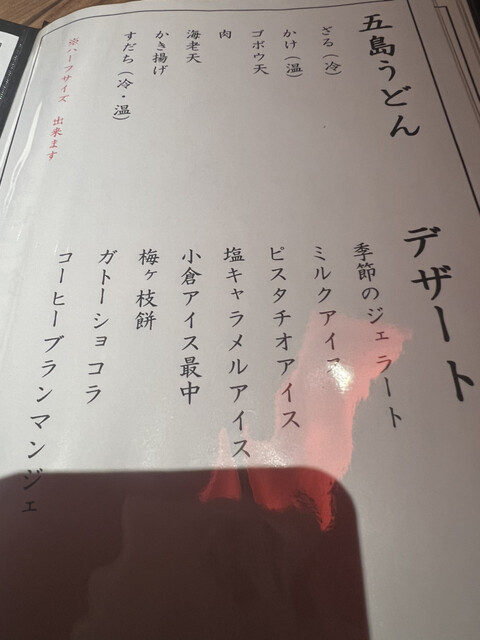 五島うどん
ざる（冷）
かけ（温）
ゴボウ天
肉
海老天
かき揚げ
すだち（冷・温）
※ハーフサイズ 出来ます
デザート
季節のジェラート
ミルクアイス
ピスタチオアイス
塩キャラメルアイス
小倉アイス最中
梅ヶ枝餅
ガトーショコラ
コーヒーブランマンジェ